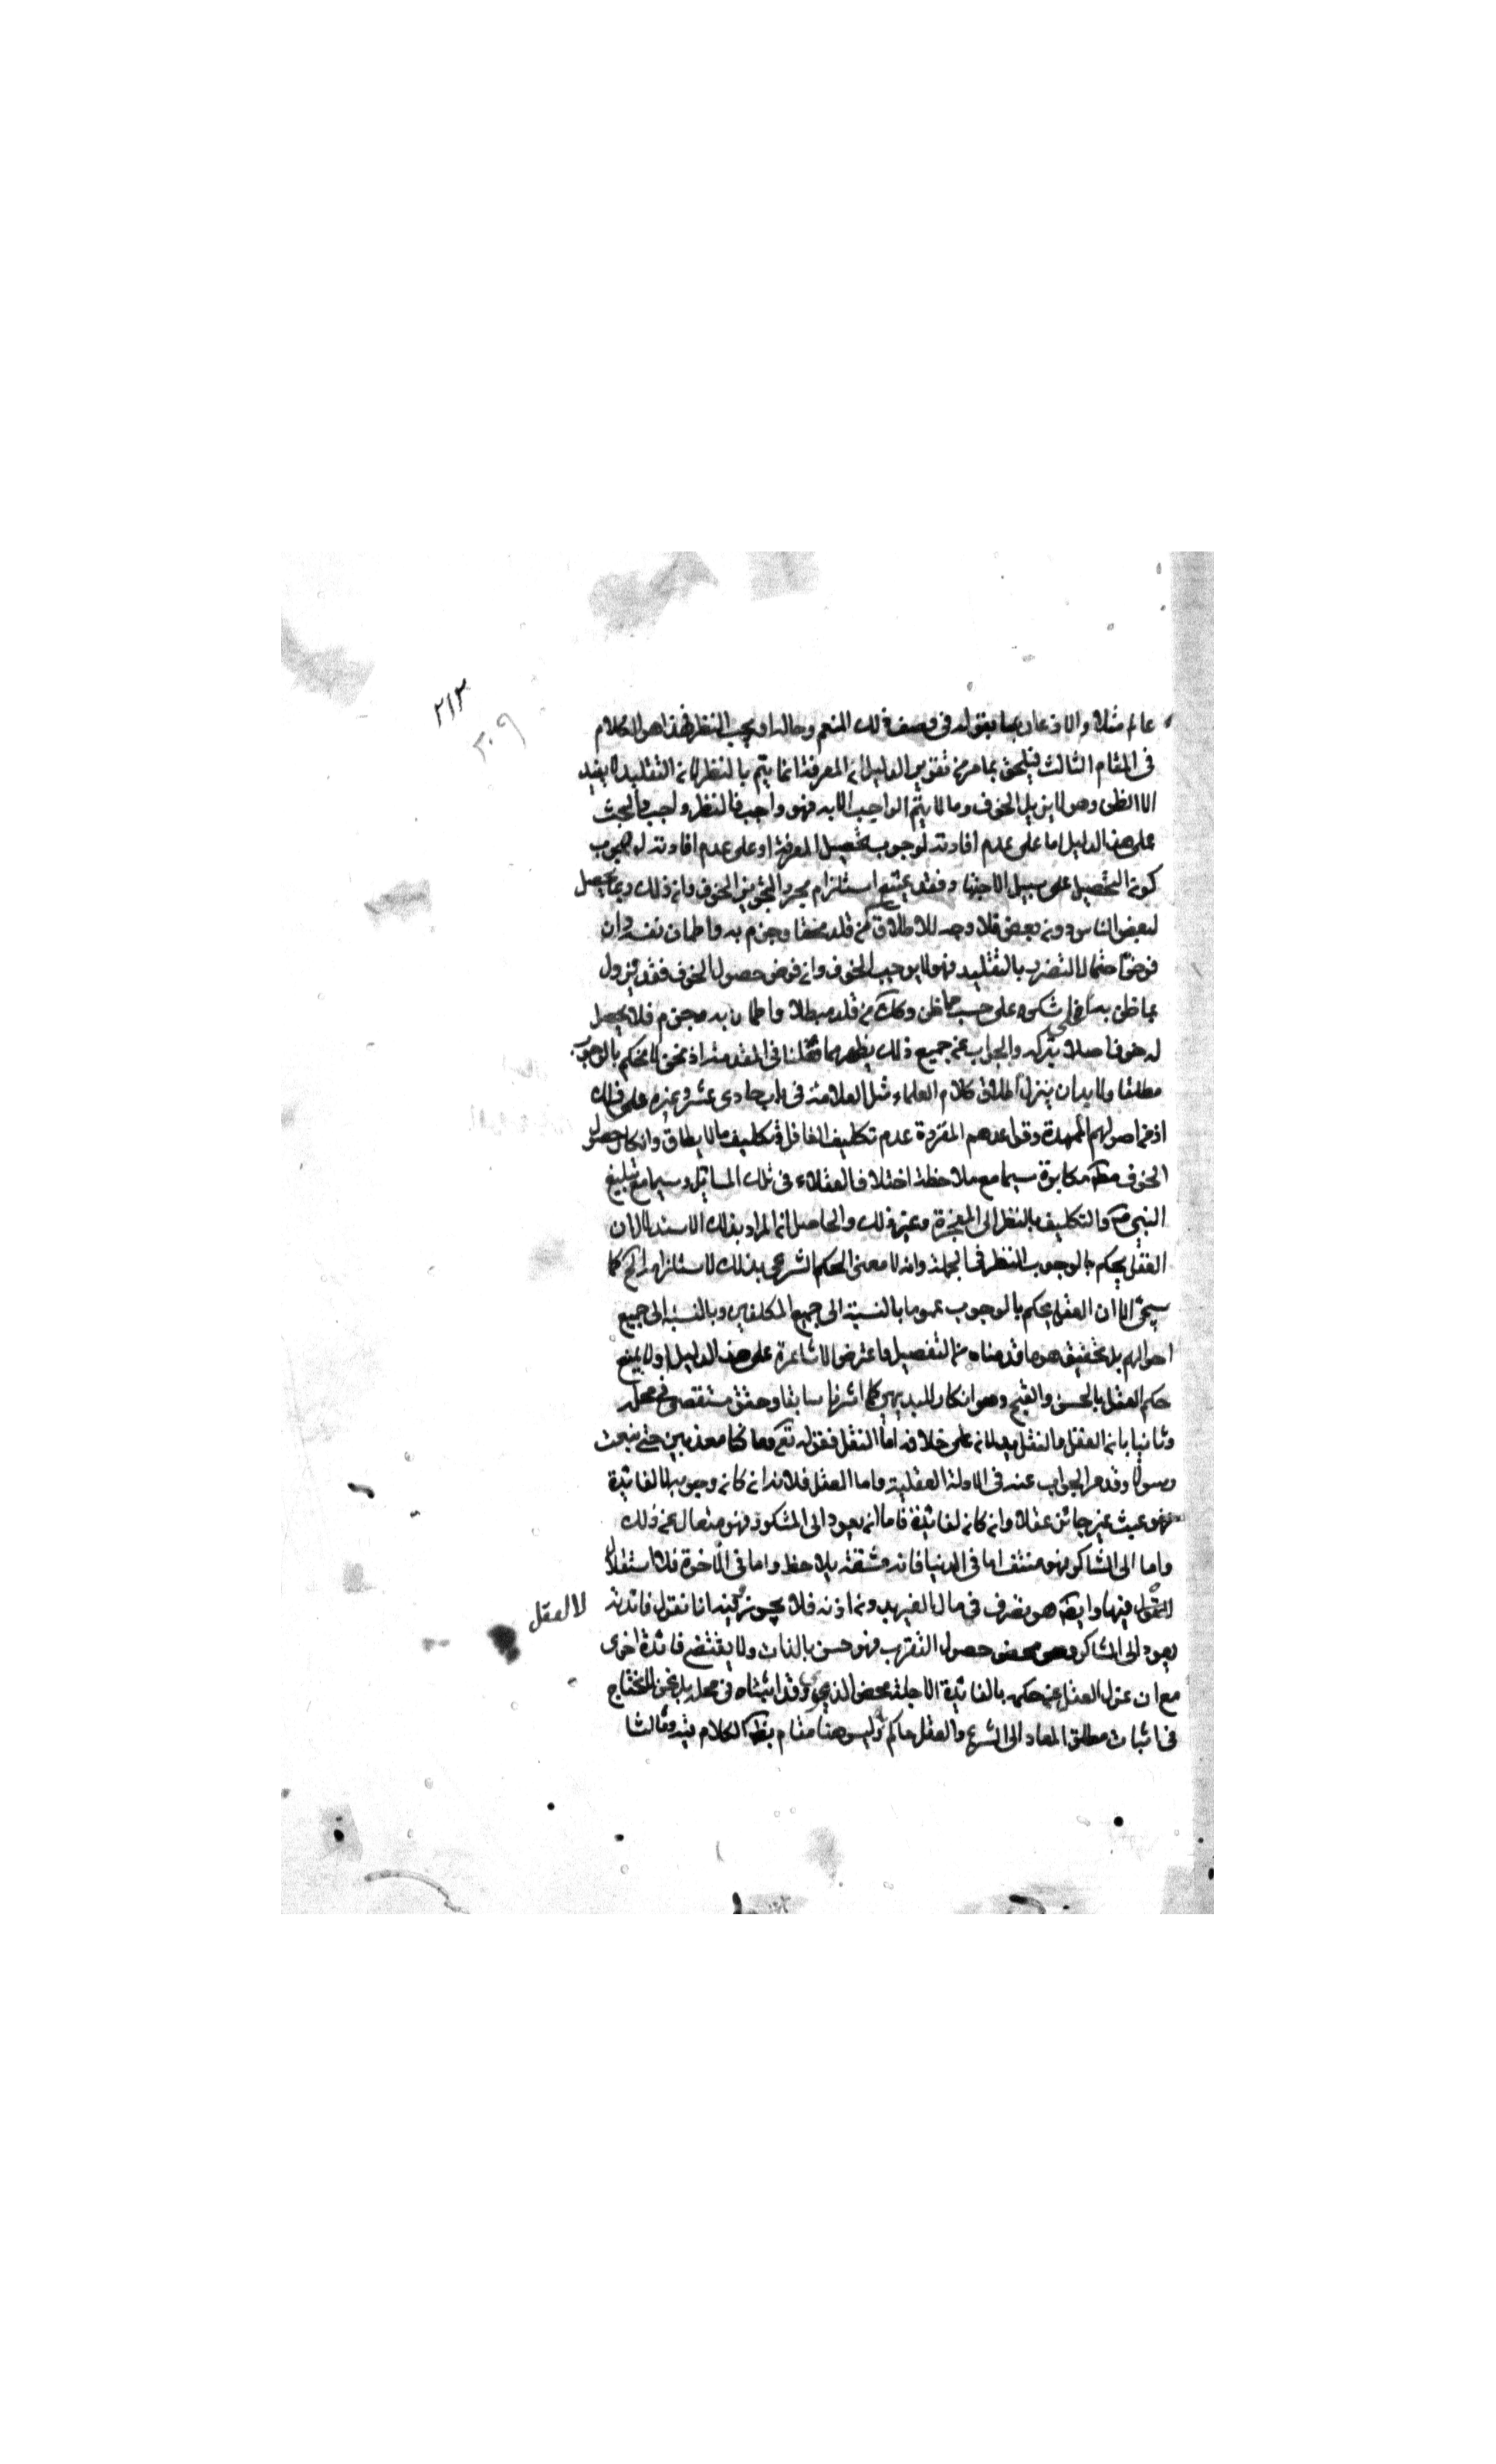 ٢١٣
٢٠٩
عالم مثلا والاذعان بما يقوله في وصف ذلك المنعم وحاله او يجب النظر فهذا هو الكلام
في المقام الثالث فيلحق بما مر من تقوير الدليل ان المعرفة انما يتم بالنظر لان التقليد لا يفيد
الا الظن وهو لا يزيل الخوف وما لا يتم الواجب الا به فهو واجب فالنظر واجب والبحث
على هذا الدليل اما على عدم افادته لوجوب تحصيل المعرفة او على عدم افادته لوجوب
كون التحصيل على سبيل الاجتهاد فقد يمنع استلزام مجرد التجويز الخوف وان ذلك ربما يحصل
لبعض الناس دون بعض فلا وجه للاطلاق فمن قلد محقا وجزم به واطمان نفسه وان
فرض احتمال التضرر بالتقليد فهو لا يوجب الخوف وان فرض حصول الخوف فقد يزول
بما ظن به شكره على حسب ما ظن وكك من قلد مبطلا واطمان به وجزم فلا يحصل
له خوف اصلا بتركه والجواب عن جميع ذلك يظهر مما فصلنا في المقدمة اذ نحن لا نحكم بالوجوب
مطلقا ولا بد ان ينزل اطلاق كلام العلماء مثل العلامة في باب حادي عشر وغيره على ذلك
اذ من اصولهم الممهدة وقواعدهم المقررة عدم تكليف الغافل وتكليف ما لا يطاق وانكار حصول
الخوف مط مكابرة سيما مع ملاحظة اختلاف العقلاء في تلك المسائل وسيما مع تبليغ
النبي ص والتكليف بالنظر الى المعجزة وغير ذلك والحاصل ان المراد بذلك الاستدلال ان
العقل يحكم بالوجوب النظر في الجملة وانه لا معنى الحكم الشرعي بذلك لاستلزامه كما
سيجئ الا ان العقل يحكم بالوجوب عموما بالنسبة الى جميع المكلفين وبالنسبة الى جميع
احوالهم بل تحقيقه هو ما قدمناه من التفصيل واعترض الاشاعرة على هذا الدليل اولا بمنع
حكم العقل بالحسن والقبح وهو انكار للبديهي كما اشرنا سابقا وحقق مستقصى في محله
وثانيا بان العقل والنقل يدلان على خلافه اما النقل فقوله تع وما كنا معذبين حتى نبعث
رسولا وقد مر الجواب عنه في الادلة العقلية واما العقل فلانه ان كان وجوبه لا لفائدة
فهو عبث غير جائز عقلا وان كان لفائدة فاما ان يعود الى المشكور فهو متعال عن ذلك
واما الى الشاكر فهو منتف اما في الدنيا فانه مشقة بلا حظ واما في الاخرة فلا استقلال
للعقول فيها وايضا هو تصرف في مال الغير بدون اذنه فلا يجوز فيه انا نقول فائدته
لا العقل
يعود الى الشاكر وهو محض حصول التقرب فهو حسن بالذات ولا يقتضي فائدة اخرى
مع ان عزل العقل عن حكمه بالفائدة الاجلة محض الدعوى وقد اثبتناه في محله بل نحن لا نحتاج
في اثبات مطلق المعاد الى الشرع والعقل حاكم وليس هنا مقام بسط الكلام فيه وثالثا